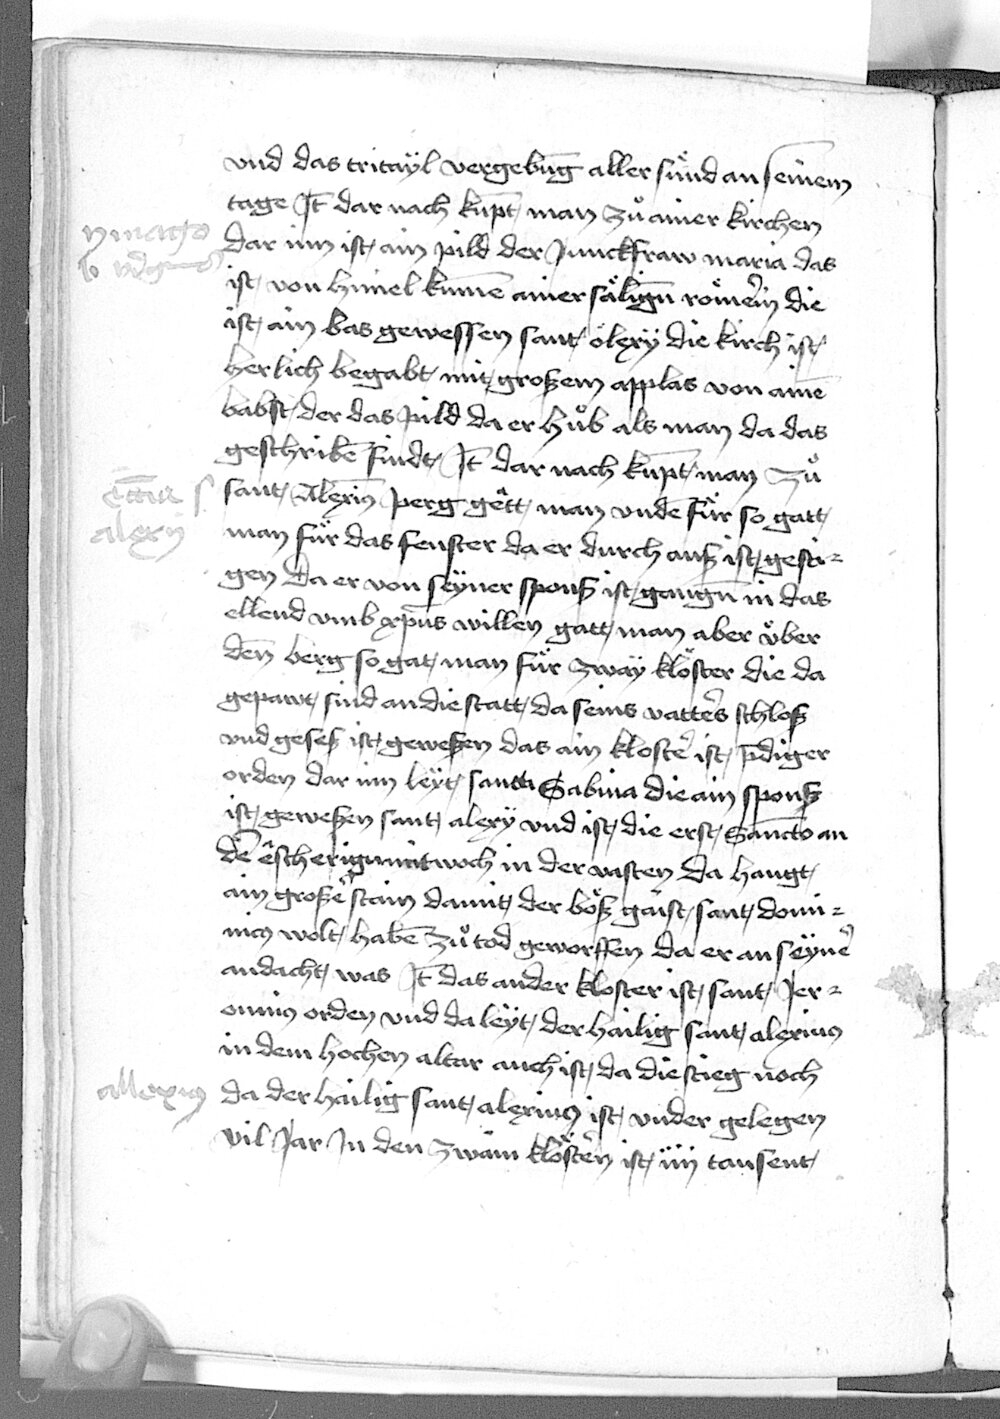 vnd das tritayl vergebūg aller sünd an seinem
tage Jt̄ dar nach kūpt man zů ainer kirchen
ymago
dar inn ist ain pild der Junckfraw maria das
b v̄dginis
ist von himel kumē ainer säligñ römerin die
ist ain bas gewessen sant olexÿ die kirch ist
herlich begabt mit großem applas von ainē
babst der das pild da er hůb als man da das
geschribē findt Jt̄ dar nach kūpt man zů
ecc̄ia s
sant Alexius perg gett man vndē für so gatt
alexii
man für das fenster da er durch auß ist gesti-
gen da er von seÿner spouß ist gangñ in das
ellend vmb xp̄us willen gatt man aber über
den̄ berg so gat man für zwaÿ klöster die da
gepawt sind an die statt da seins vatters schloß
vnd geseß ist geweßen das ain kloster ist p̄diger
orden dar inn leÿt santa Sabina die ain spouß
ist geweßen sant alexÿ vnd ist die erst Sancto an
dē escherigñ mitwoch in der vasten da hangt
ain großer stain damit der böß gaist sant domi-
nicus wolt habē zů tod geworffen da er an seÿner
andacht was Jt̄ das ander kloster ist sant Jer-
onimus orden vnd da leÿt der hailig sant alexius
in dem hochen altar auch ist da die stieg noch
allexius
da der hailig sant alexius ist vnder gelegen
vil Jar Jn den zwain klöstern ist iiij tausent